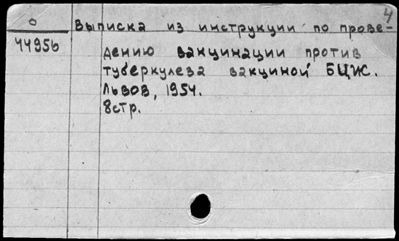 4
0
Выписка из инструкции по прове-
44956
дению вакцинации против
туберкулеза вакциной БЦЖ.
Львов, 1954.
8стр.